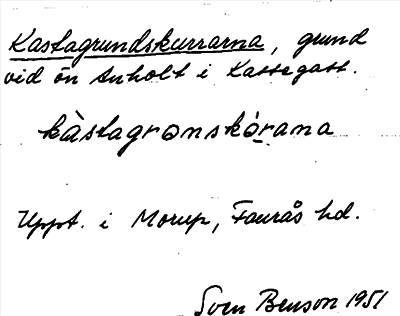 Kastagrundskurrarna, grund
vid ön Anholt i Kattegatt.
kàstagrɷnskọ̀rana
Uppt. i Morup, Faurås hd.
Sven Benson 1951